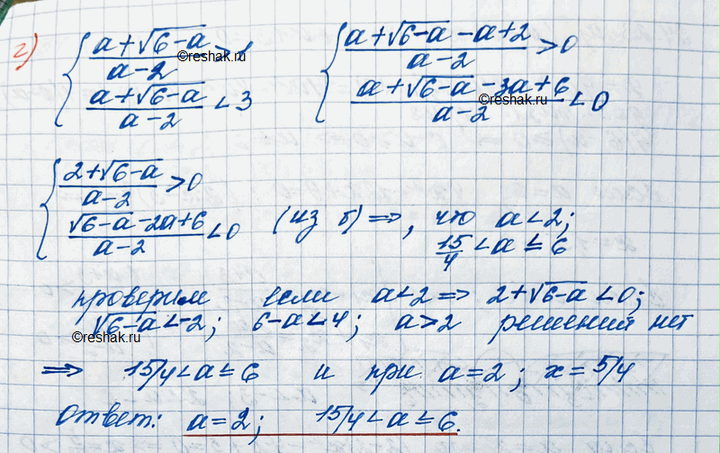 г) { (a+√(6-a))/(a-2) > 1    { (a+√(6-a)-a+2)/(a-2) > 0
{ (a+√(6-a))/(a-2) < 3    { (a+√(6-a)-3a+6)/(a-2) < 0
reshak.ru
reshak.ru
{ (2+√(6-a))/(a-2) > 0
{ (√(6-a)-2a+6)/(a-2) < 0 (из б) ⇒, что a<2;
15/4 < a ≤ 6
проверим если a<2 ⇒ 2+√(6-a)<0;
√(6-a)<-2; 6-a<4; a>2 решений нет
reshak.ru
⇒ 15/4<a≤6 и при a=2; x=5/4
Ответ: a=2; 15/4<a≤6.